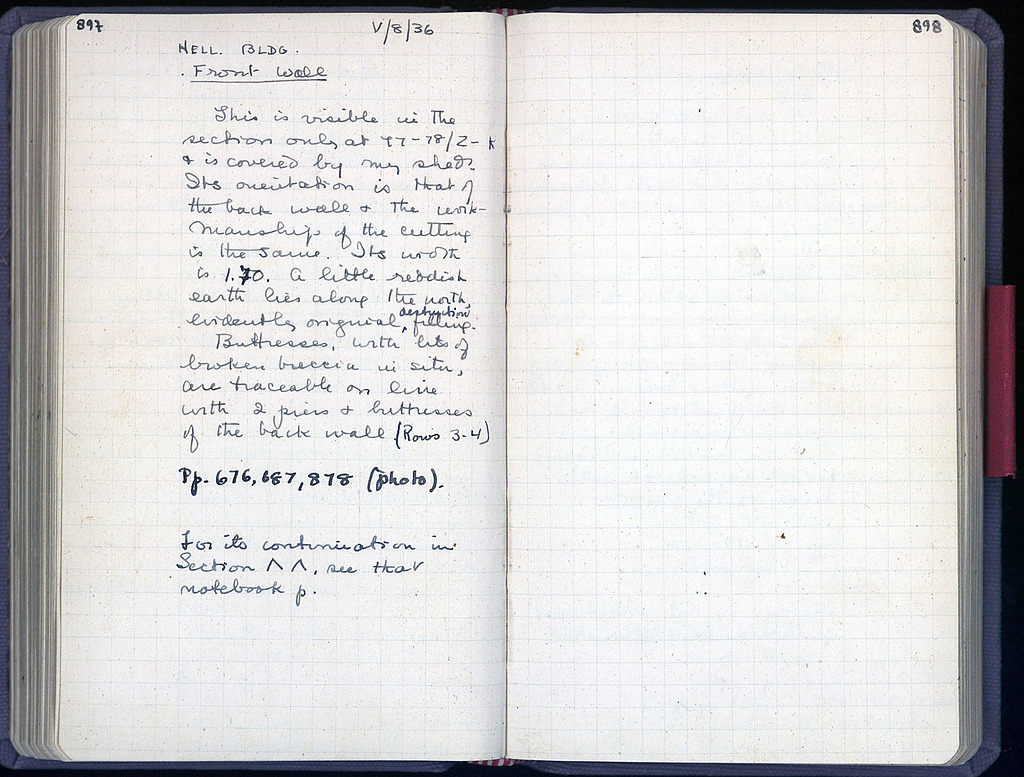 897
V/8/36
898
HELL. BLDG.
Front Wall
This is visible in the
section only at 77-78/Z-
& is covered by my shed.
Its orientation is that of
the back wall & the work-
manship of the cutting
is the same. Its width
is 1.70. A little reddish
earth lies along the north,
destruction
evidently original, filling.
Buttresses, with bits of
broken breccia in situ,
are traceable on line
with 2 piers & buttresses
of the back wall (Rows 3-4)
Pp. 676, 687, 878 (photo).
For its continuation in
Section Λ Λ, see that
notebook p.